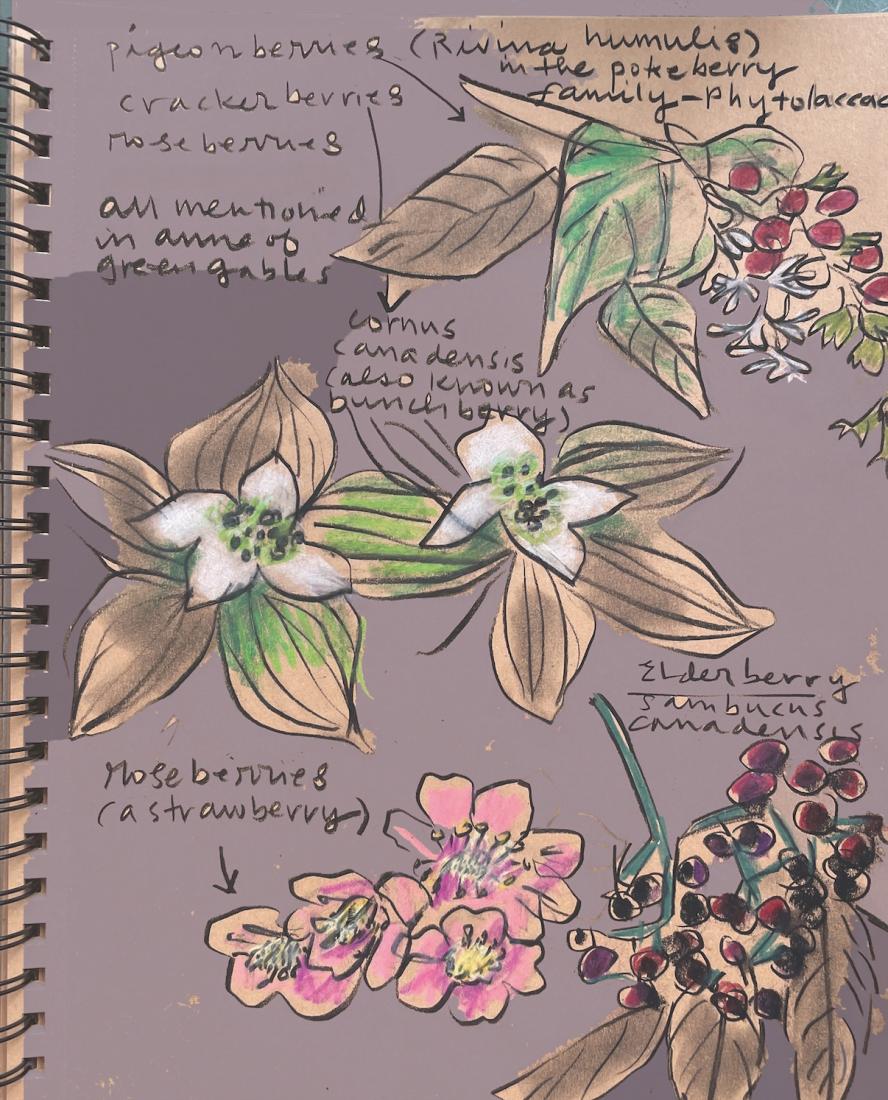 pigeonberries (Rivina humulis)
in the pokeberry
family - Phytolaccac
crackerberries
roseberries
all mentioned
in anne of
green gables
cornus
canadensis
(also known as
bunchberry)
Elderberry
sambucus
canadensis
Roseberries
(a strawberry)